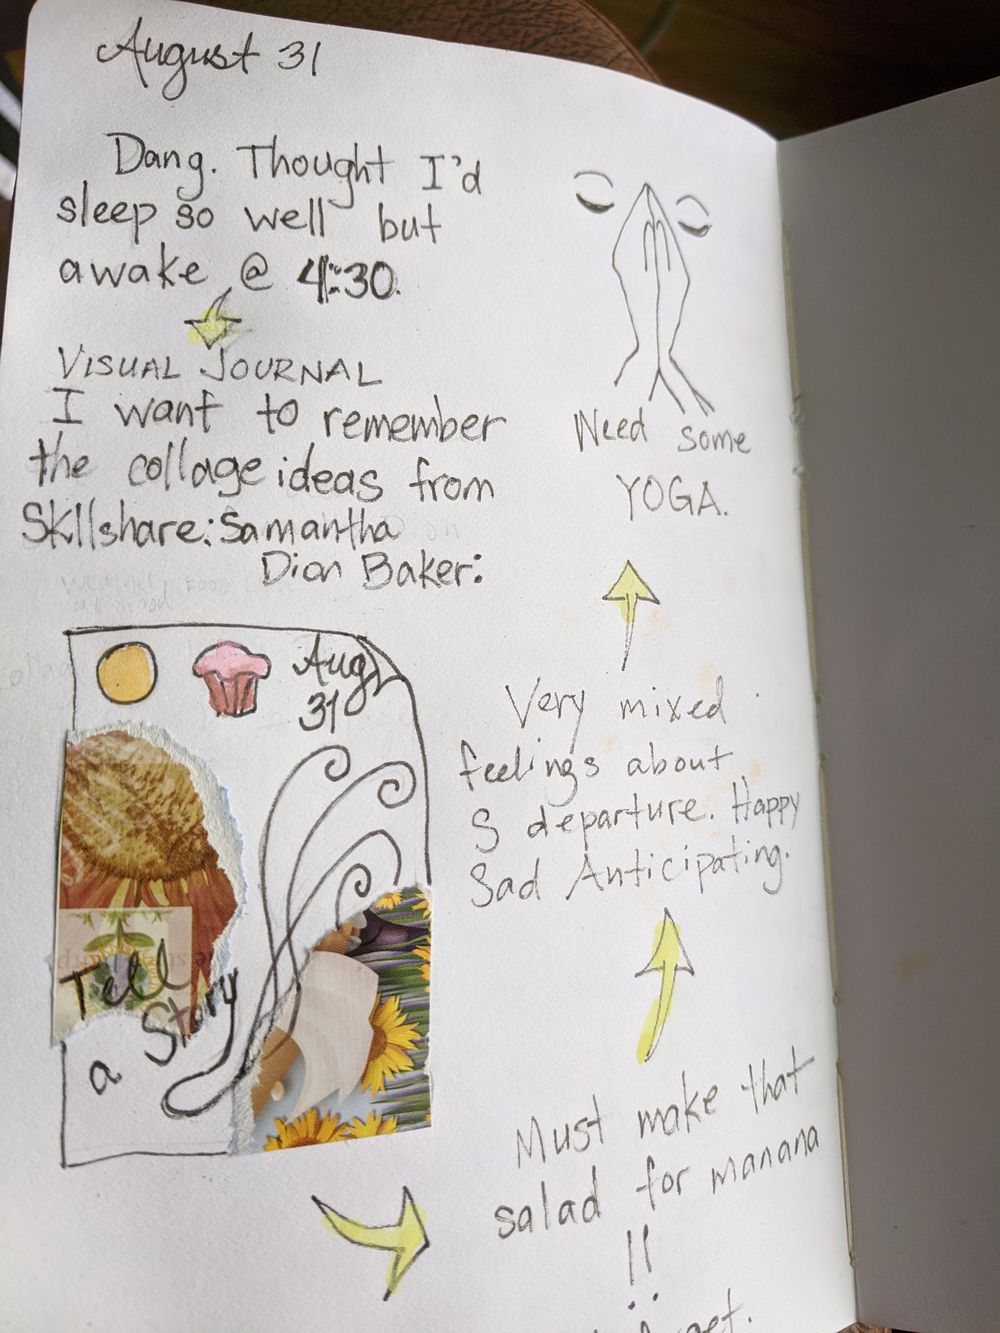 August 31
Dang. Thought I'd
sleep so well but
awake @ 4:30.
VISUAL JOURNAL
I want to remember
the collage ideas from
Skllshare: Samantha
Dion Baker:
Aug
31
Tell
a Story
Must make that
salad for manana
!!
Very mixed
feelings about
S departure. Happy
Sad Anticipating.
Need some
YOGA.